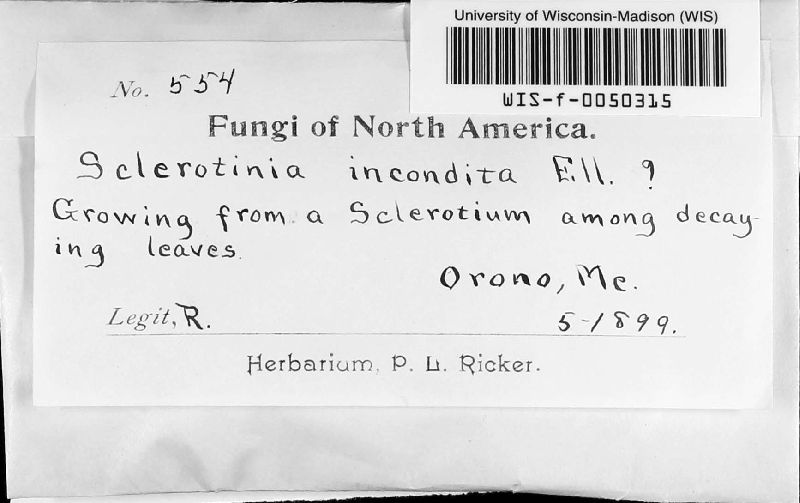 University of Wisconsin-Madison (WIS)
WIS-f-0050315
No. 554
Fungi of North America.
Sclerotinia incondita Ell. ?
Growing from a Sclerotium among decay-
ing leaves.
Orono, Me.
Legit, R.
5-1899.
Herbarium, P. L. Ricker.